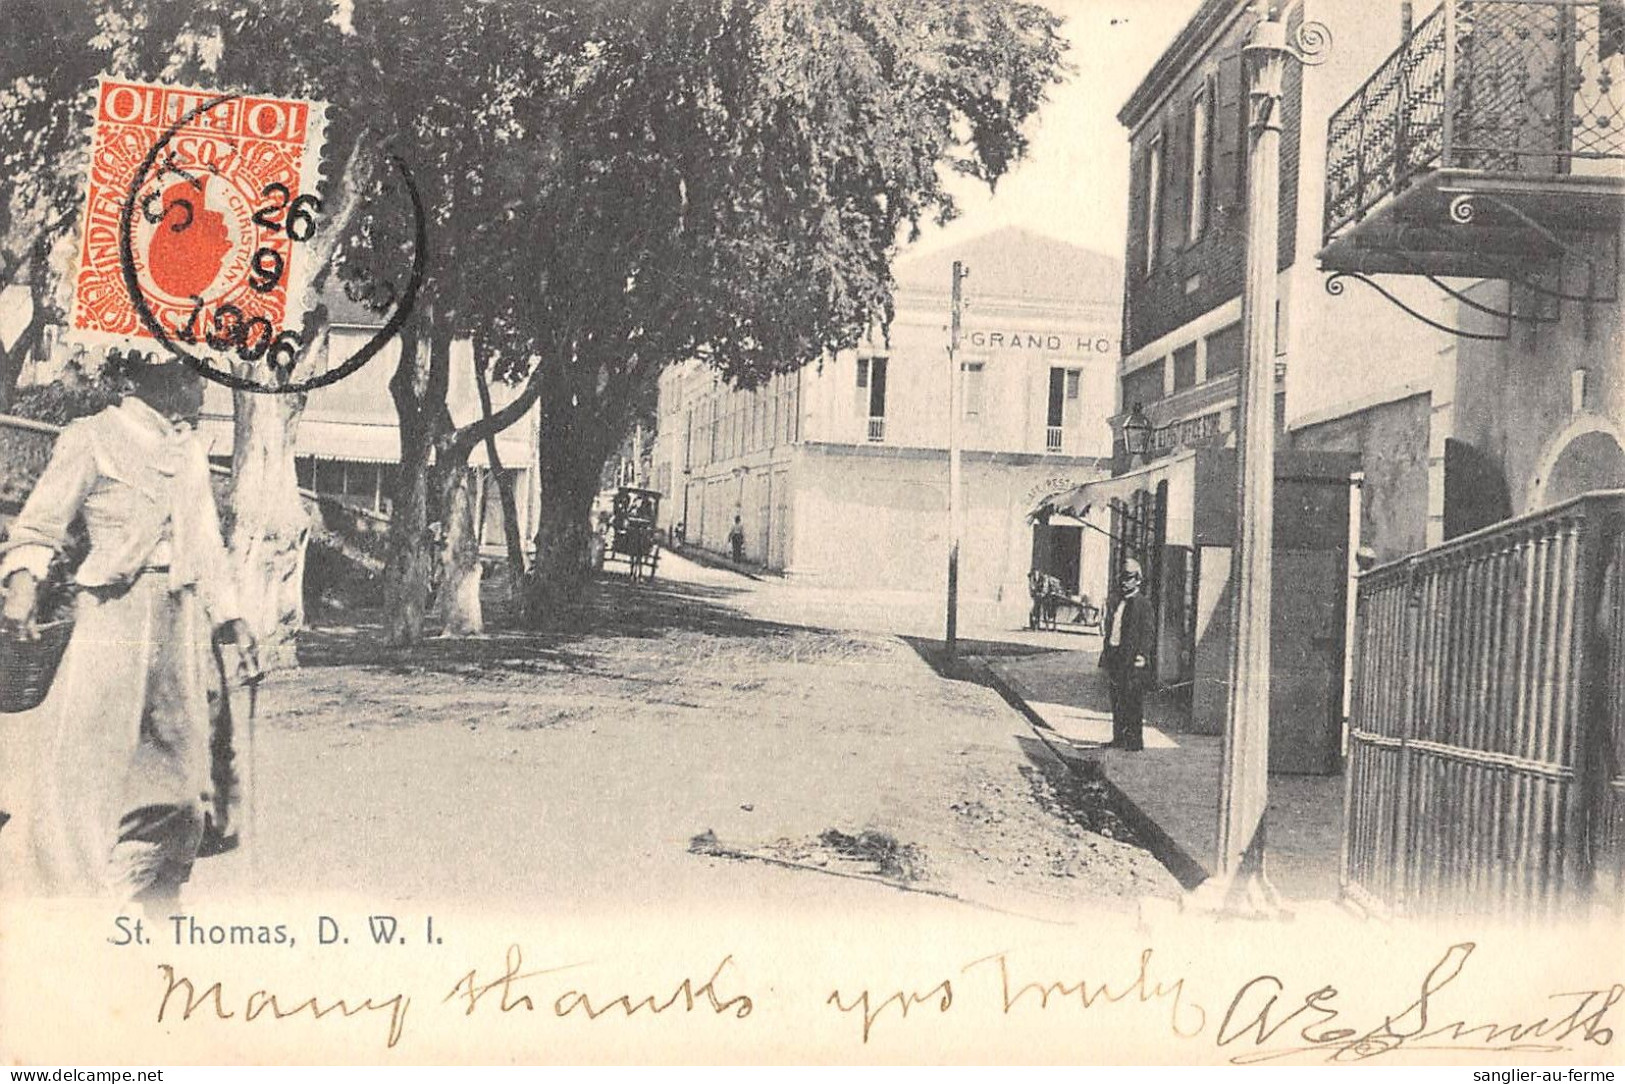 10 BIT 10
POST
CHRISTIAN
ST.
26
9
1906
GRAND HO
St. Thomas, D. W. I.
Many thanks yrs truly A E Smith
delcampe.net
sanglier-au-ferme